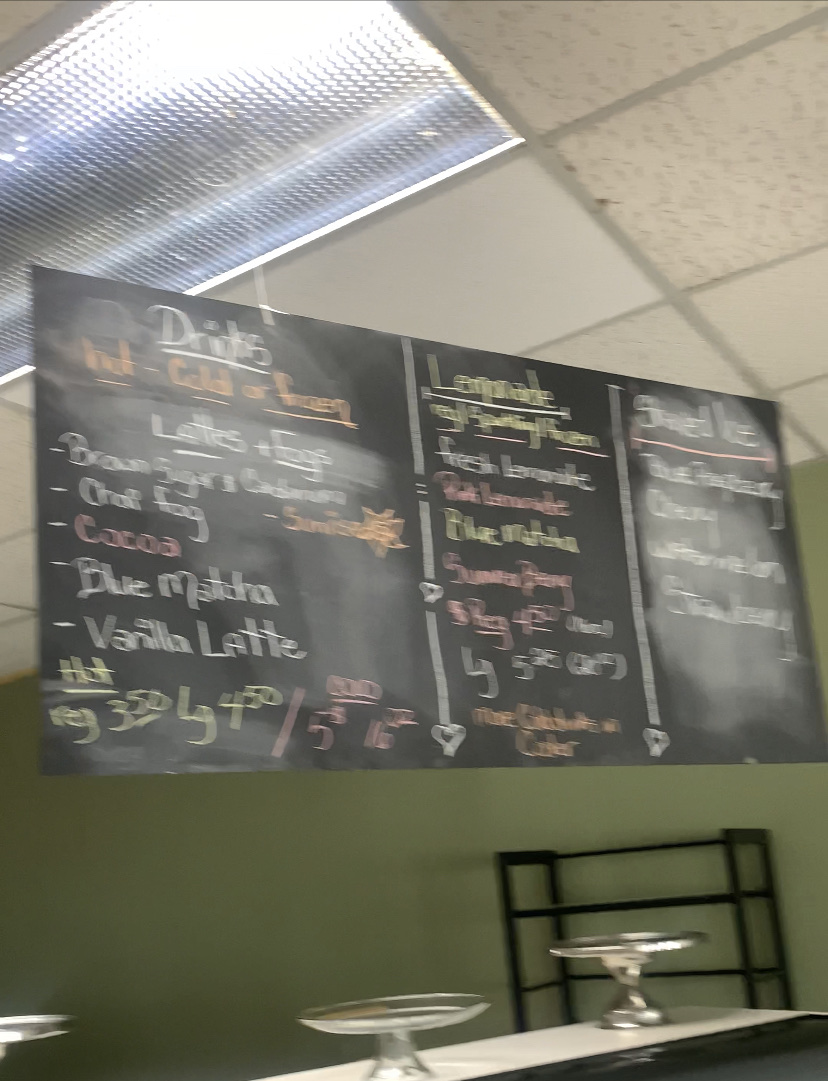 Drinks
hot - Cold or frozen
Lattes + Fogs
- Brown Sugar & Cardamom
- Chai Fog
- Sunrise
- Cocoa
- Blue Matcha
- Vanilla Latte
Hot
reg 3.50 Lg 4.50 /
Cold
5 16oz
Lemonade
reg / Sparkling / frozen
fresh Lemonade
Pink Lemonade
Blue Matcha
Summer Berry
Reg 4
Lg 5
Shaved Ice
Blue Raspberry
Cherry
Watermelon
Strawberry